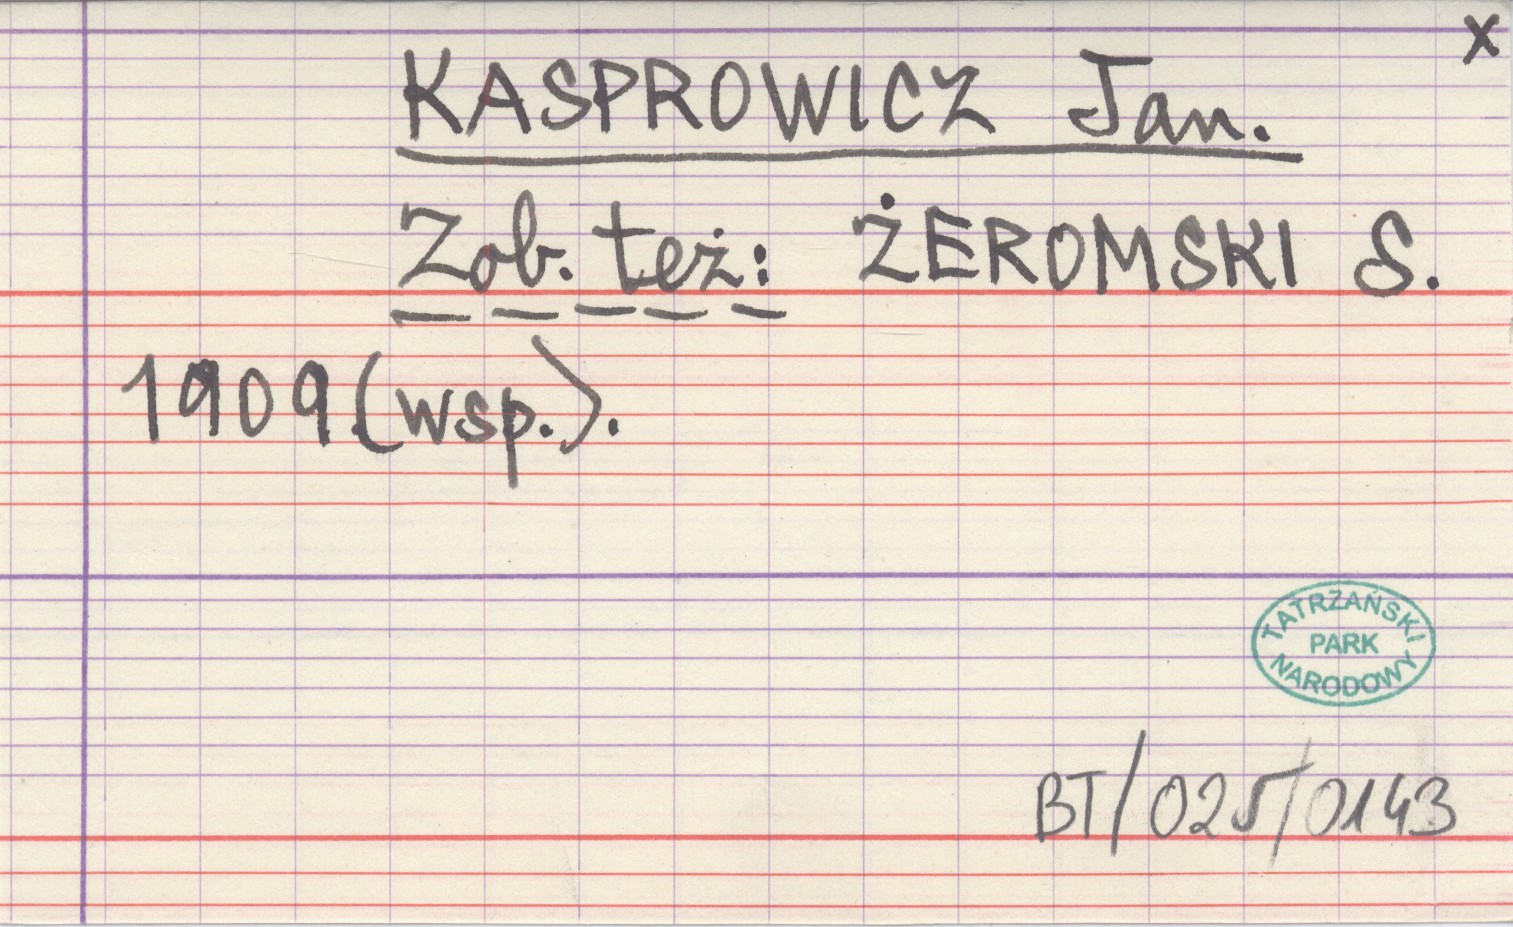 x
KASPROWICZ Jan.
Zob. też: ŻEROMSKI S.
1909 (wsp.).
TATRZAŃSKI
PARK
NARODOWY
BT/025/0143